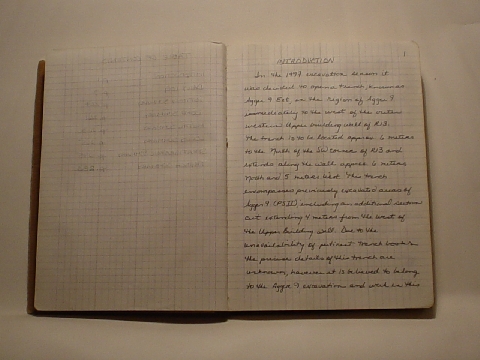 1
INTRODUCTION
In the 1997 excavation season it
was decided to open a trench, known as
Agger 9 Ext, in the region of Agger 9
immediately to the west of the outer
western Upper building wall of R13.
The trench is to be located approx 6 meters
to the North of the SW corner of R13 and
extends along the wall approx 6 meters
North and 5 meters West. This trench
encompasses previously excavated areas of
Agger 9 (PSII) including an additional
cut extending 4 meters from the West of
the Upper Building Wall. Due to the
unavailability of pertinent trench books
the precise details of this trench are
unknown, however it is believed to belong
to the Agger 9 excavation and work in this